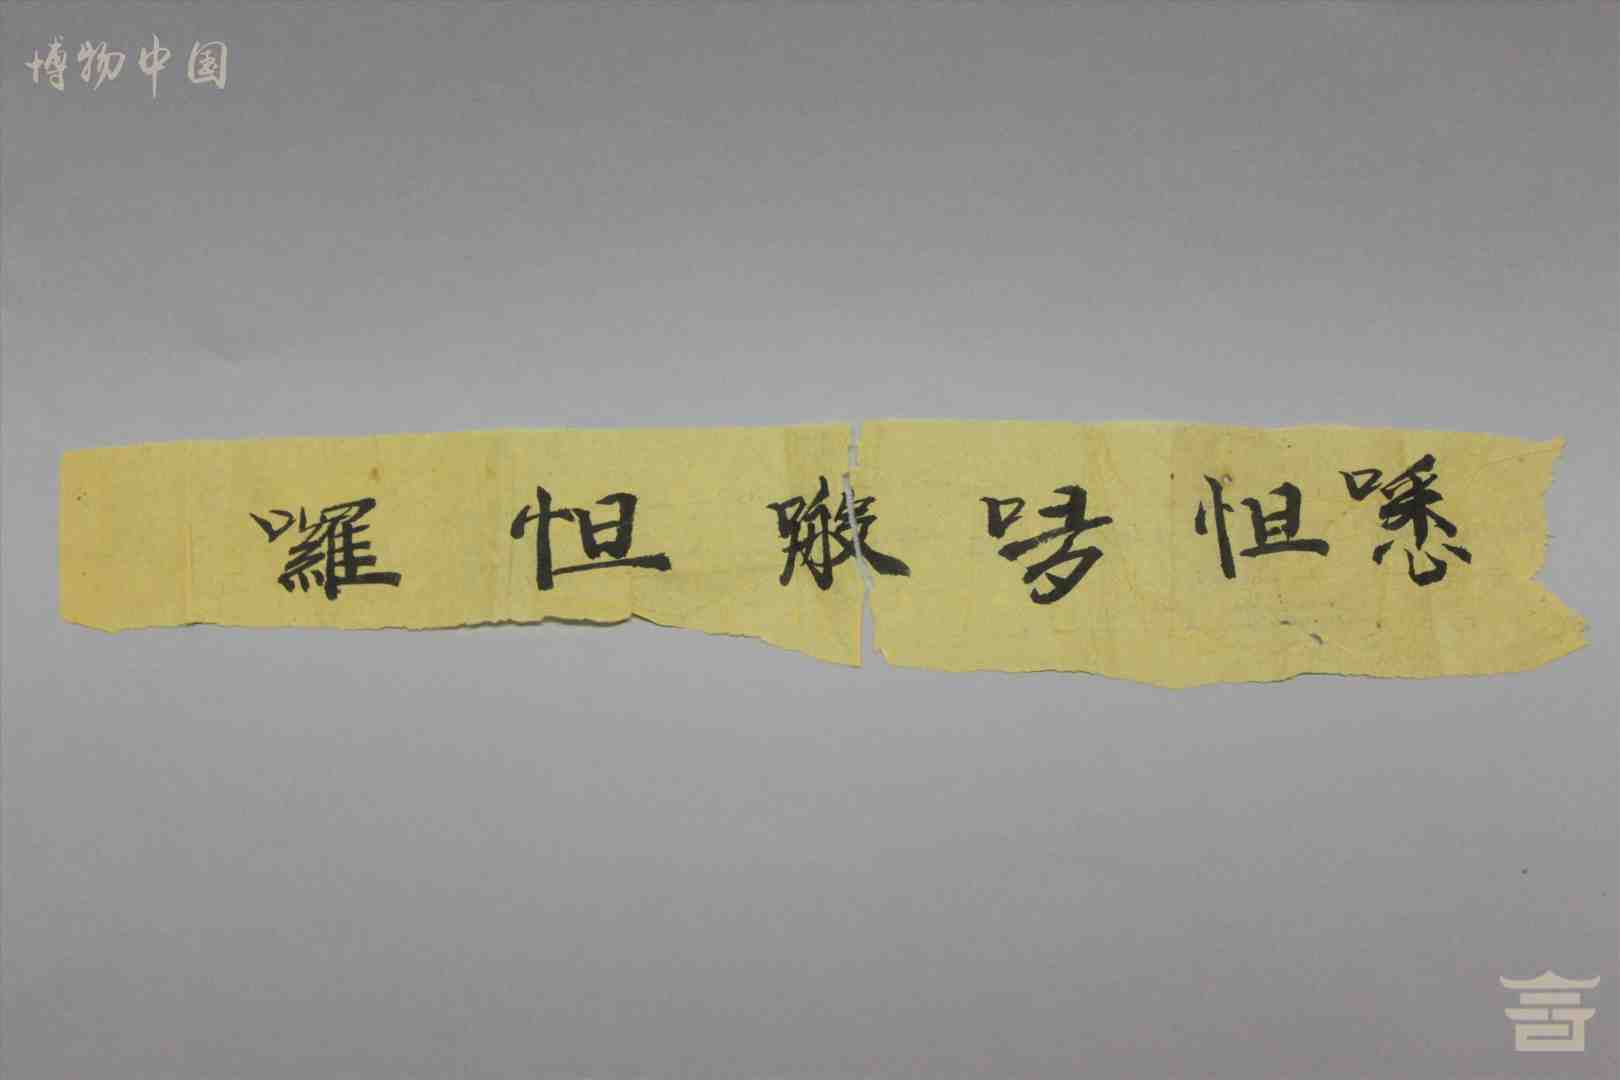 博物中国
㗭怛哆怛囉